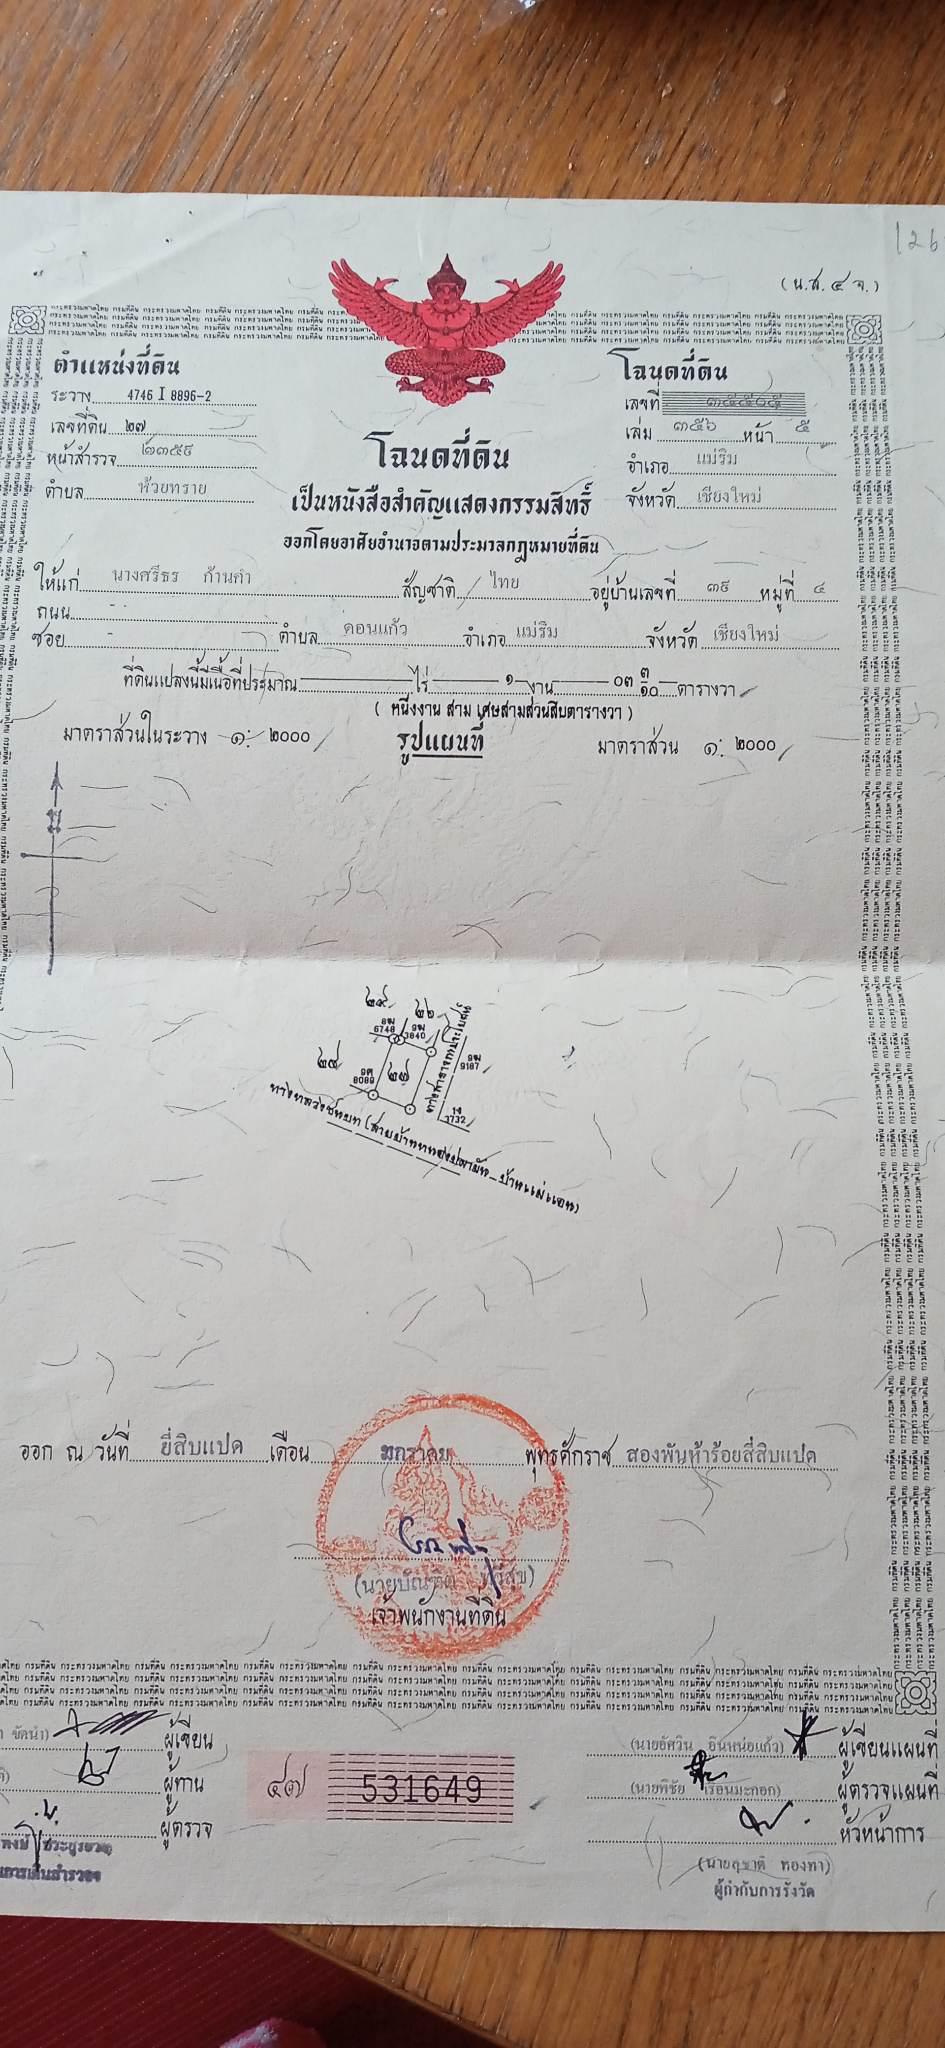 126
(น.ส. ๔ จ.)
ตำแหน่งที่ดิน
ระวาง 4746 I 8896-2
เลขที่ดิน ๒๗
หน้าสำรวจ ๒๓๕๕
ตำบล ห้วยทราย
โฉนดที่ดิน
เลขที่
เล่ม ๓๕๖ หน้า ๕
อำเภอ แม่ริม
จังหวัด เชียงใหม่
โฉนดที่ดิน
เป็นหนังสือสำคัญแสดงกรรมสิทธิ์
ออกโดยอาศัยอำนาจตามประมวลกฎหมายที่ดิน
ให้แก่ นางศรีธร ก้านคำ สัญชาติ ไทย อยู่บ้านเลขที่ ๓๙ หมู่ที่ ๔
ถนน -
ซอย - ตำบล ดอนแก้ว อำเภอ แม่ริม จังหวัด เชียงใหม่
ที่ดินแปลงนี้มีเนื้อที่ประมาณ ไร่ ๑ งาน ๐๓ ๓/๑๐ ตารางวา
( หนึ่งงาน สาม เศษสามส่วนสิบตารางวา )
มาตราส่วนในระวาง ๑: ๒๐๐๐ รูปแผนที่ มาตราส่วน ๑: ๒๐๐๐
น
๒๘
6748
3840
9187
8089
๒๗
3732
ทางสาธารณประโยชน์
ออก ณ วันที่ ยี่สิบแปด เดือน มกราคม พุทธศักราช สองพันห้าร้อยสี่สิบแปด
เจ้าพนักงานที่ดิน
ผู้เขียน
ผู้ทาน
ผู้ตรวจ
๔๗ 531649
(นายอัศวิน อินหน่อแก้ว) ผู้เขียนแผนที่
(นายพิชัย เรือนมะกอก) ผู้ตรวจแผนที่
หัวหน้าการ
(นายสุชาติ ทองทา)
ผู้กำกับการรังวัด